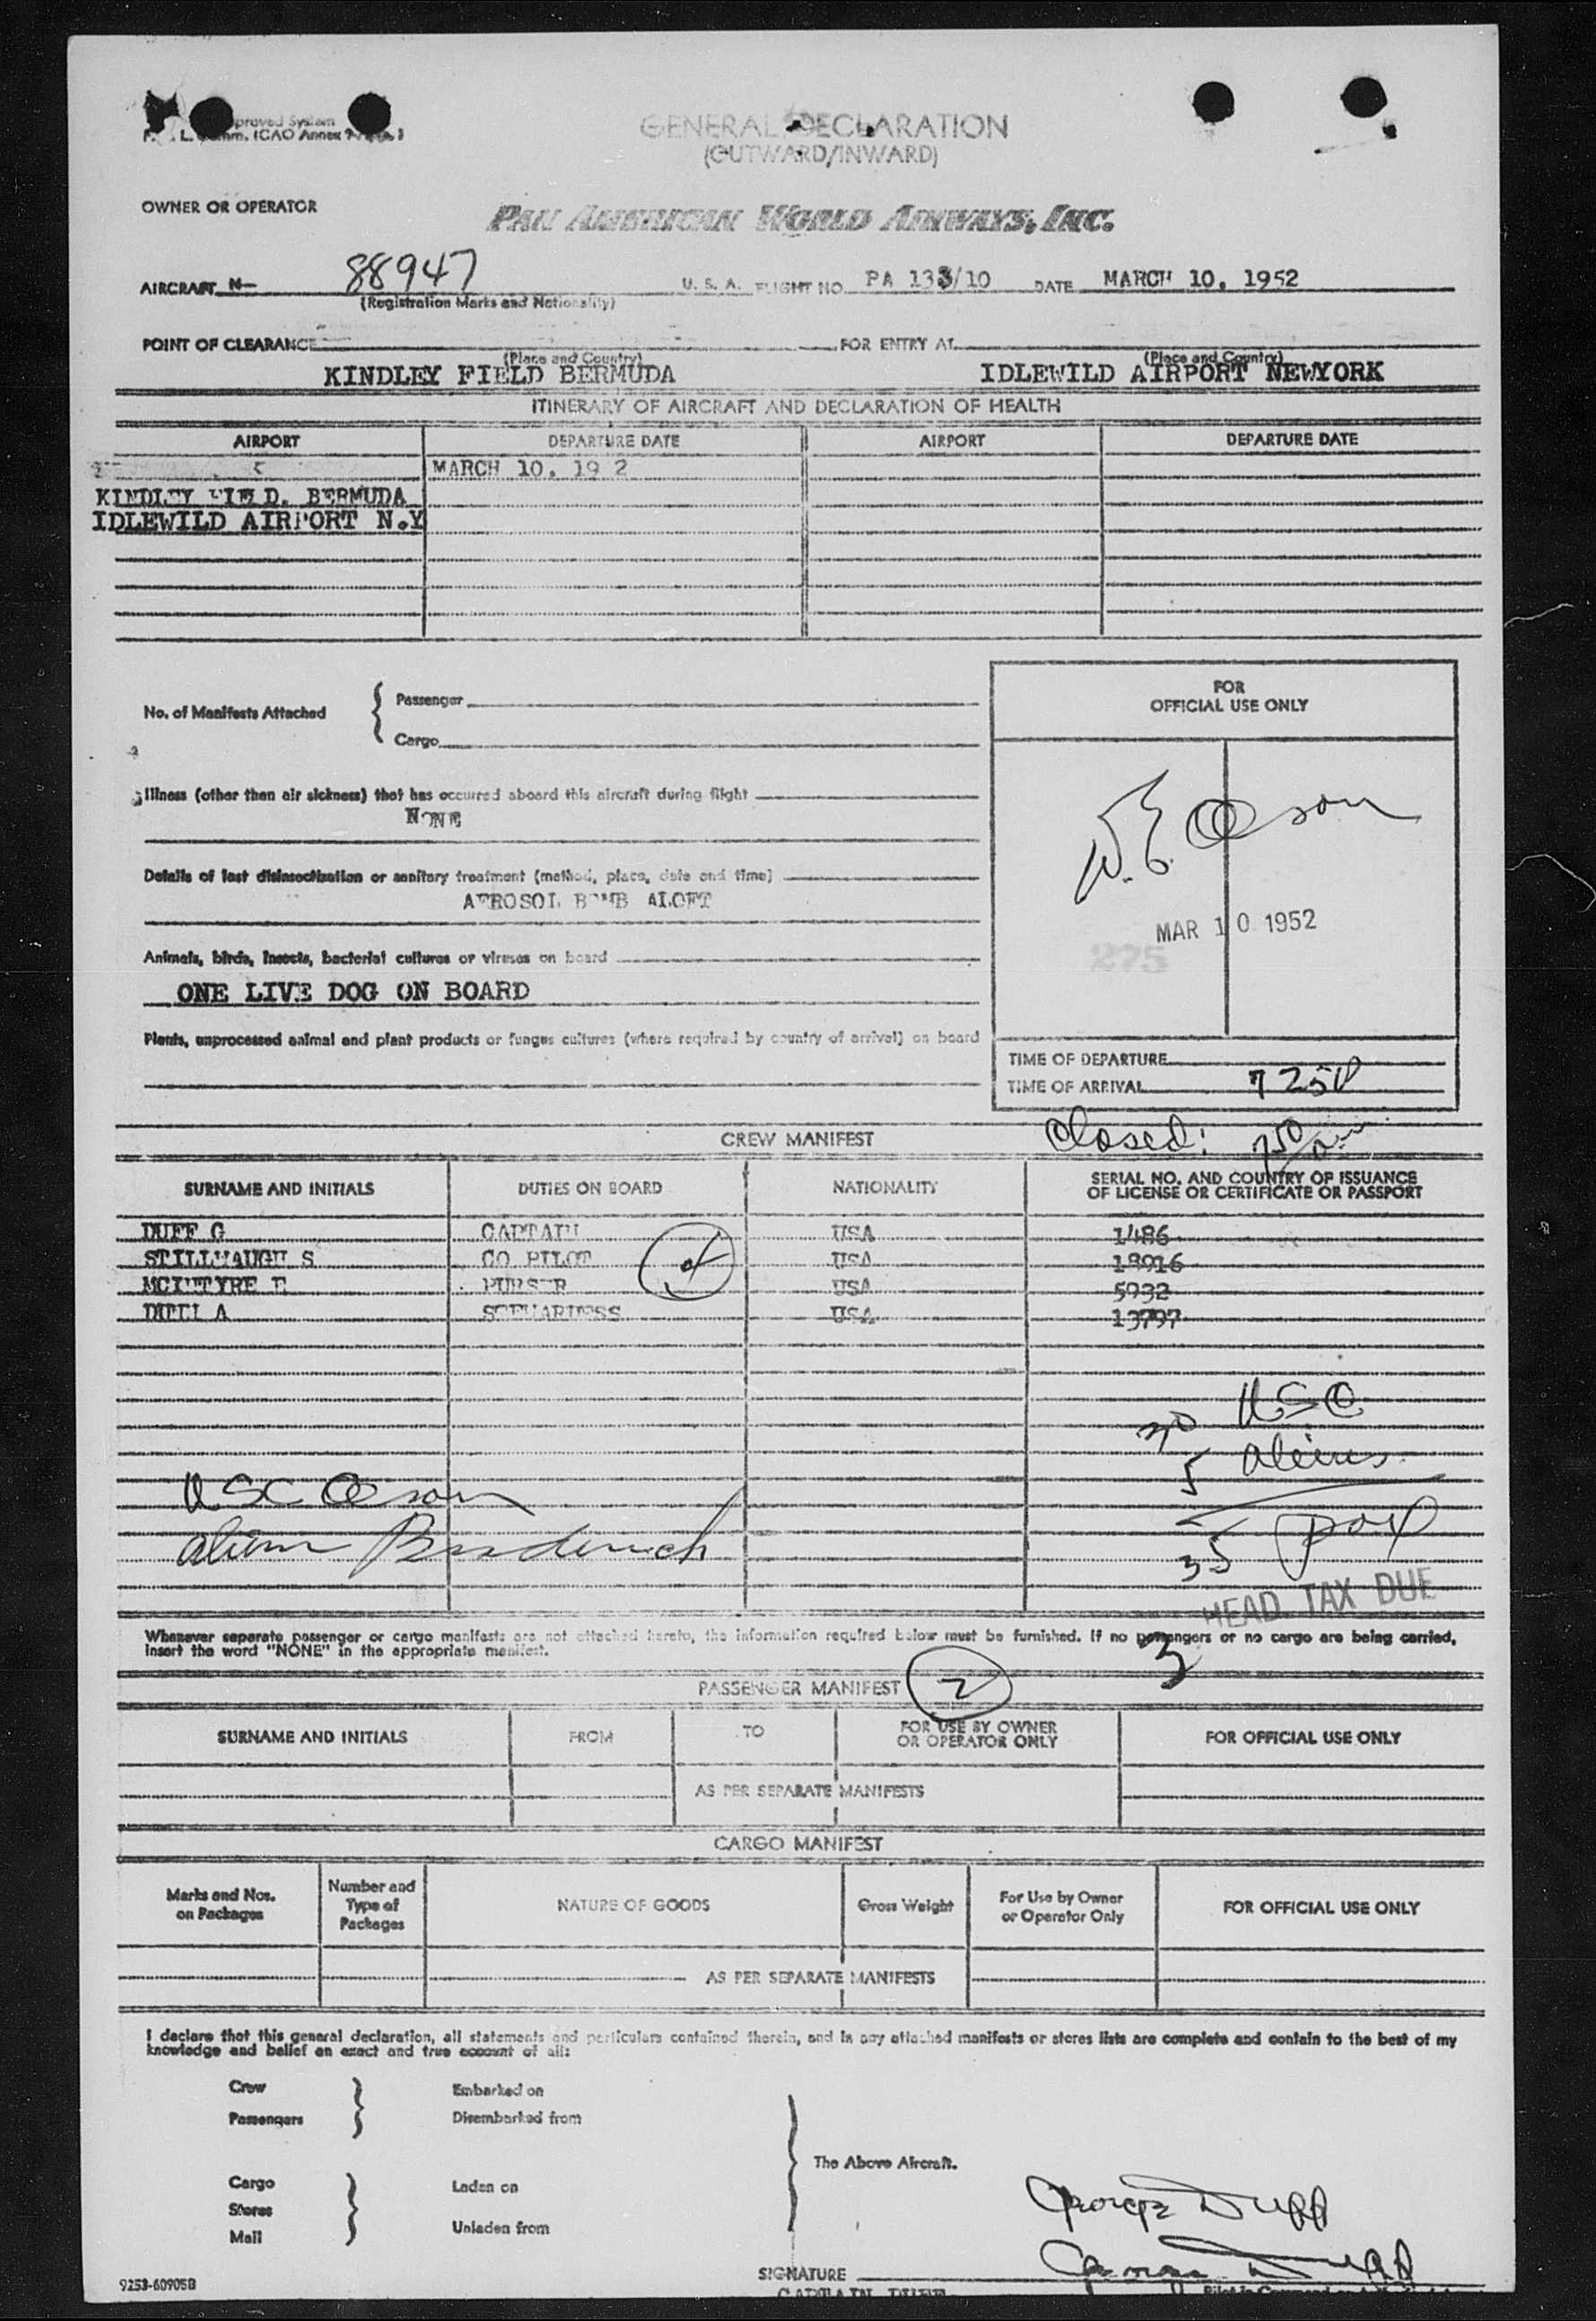 proved System
ICAO Annex
GENERAL DECLARATION
(OUTWARD/INWARD)
OWNER OR OPERATOR
PAN AMERICAN WORLD AIRWAYS, INC.
AIRCRAFT N- 88947 U. S. A. FLIGHT NO. PA 133/10 DATE MARCH 10, 1952
(Registration Marks and Nationality)
POINT OF CLEARANCE FOR ENTRY AT
(Place and Country) (Place and Country)
KINDLEY FIELD BERMUDA IDLEWILD AIRPORT NEWYORK
ITINERARY OF AIRCRAFT AND DECLARATION OF HEALTH
AIRPORT DEPARTURE DATE AIRPORT DEPARTURE DATE
5 MARCH 10, 19 2
KINDLEY FIELD, BERMUDA
IDLEWILD AIRPORT N.Y
FOR
OFFICIAL USE ONLY
No. of Manifests Attached { Passenger
Cargo
Illness (other than air sickness) that has occurred aboard this aircraft during flight
NONE
Details of last disinsectization or sanitary treatment (method, place, date and time)
AEROSOL BOMB ALOFT
MAR 10 1952
275
Animals, birds, insects, bacterial cultures or viruses on board
ONE LIVE DOG ON BOARD
Plants, unprocessed animal and plant products or fungus cultures (where required by country of arrival) on board
TIME OF DEPARTURE
TIME OF ARRIVAL 725P
CREW MANIFEST Closed: 750
SURNAME AND INITIALS DUTIES ON BOARD NATIONALITY SERIAL NO. AND COUNTRY OF ISSUANCE
OF LICENSE OR CERTIFICATE OR PASSPORT
DUFF G CAPTAIN USA 1486
STILLWAUGH S CO PILOT USA 18916
MCINTYRE E PURSER USA 5932
A STEWARDESS USA 13797
30 USC
5 aliens
USC Oeson
alien Broderick
35 pax
HEAD TAX DUE
3
Whenever separate passenger or cargo manifests are not attached hereto, the information required below must be furnished. If no passengers or no cargo are being carried,
insert the word "NONE" in the appropriate manifest.
PASSENGER MANIFEST 2
SURNAME AND INITIALS FROM TO FOR USE BY OWNER
OR OPERATOR ONLY FOR OFFICIAL USE ONLY
AS PER SEPARATE MANIFESTS
CARGO MANIFEST
Marks and Nos.
on Packages Number and
Type of
Packages NATURE OF GOODS Gross Weight For Use by Owner
or Operator Only FOR OFFICIAL USE ONLY
AS PER SEPARATE MANIFESTS
I declare that this general declaration, all statements and particulars contained therein, and in any attached manifests or stores lists are complete and contain to the best of my
knowledge and belief an exact and true account of all:
Crew Embarked on
Passengers Disembarked from
The Above Aircraft.
Cargo Laden on
Stores
Mail Unladen from
George Duff
George Duff
SIGNATURE
CAPTAIN DUFF Pilot in Command
9253-60905B